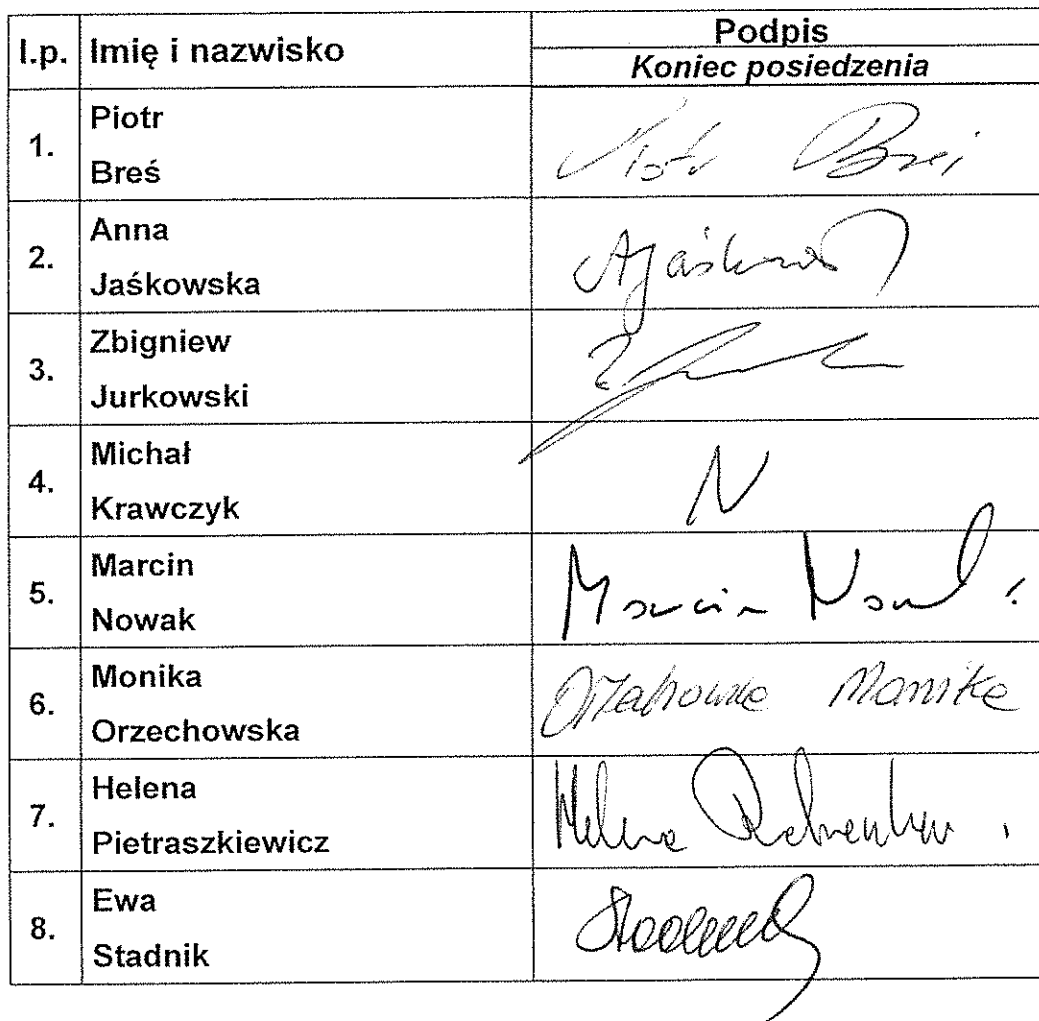 l.p. Imię i nazwisko Podpis
Koniec posiedzenia
1. Piotr
Breś
Piotr Breś
2. Anna
Jaśkowska
AJaśkowska
3. Zbigniew
Jurkowski
4. Michał
Krawczyk
N
5. Marcin
Nowak
Marcin Nowak
6. Monika
Orzechowska
Orzechowska Monika
7. Helena
Pietraszkiewicz
Helena Pietraszkiewicz
8. Ewa
Stadnik
Stadnik